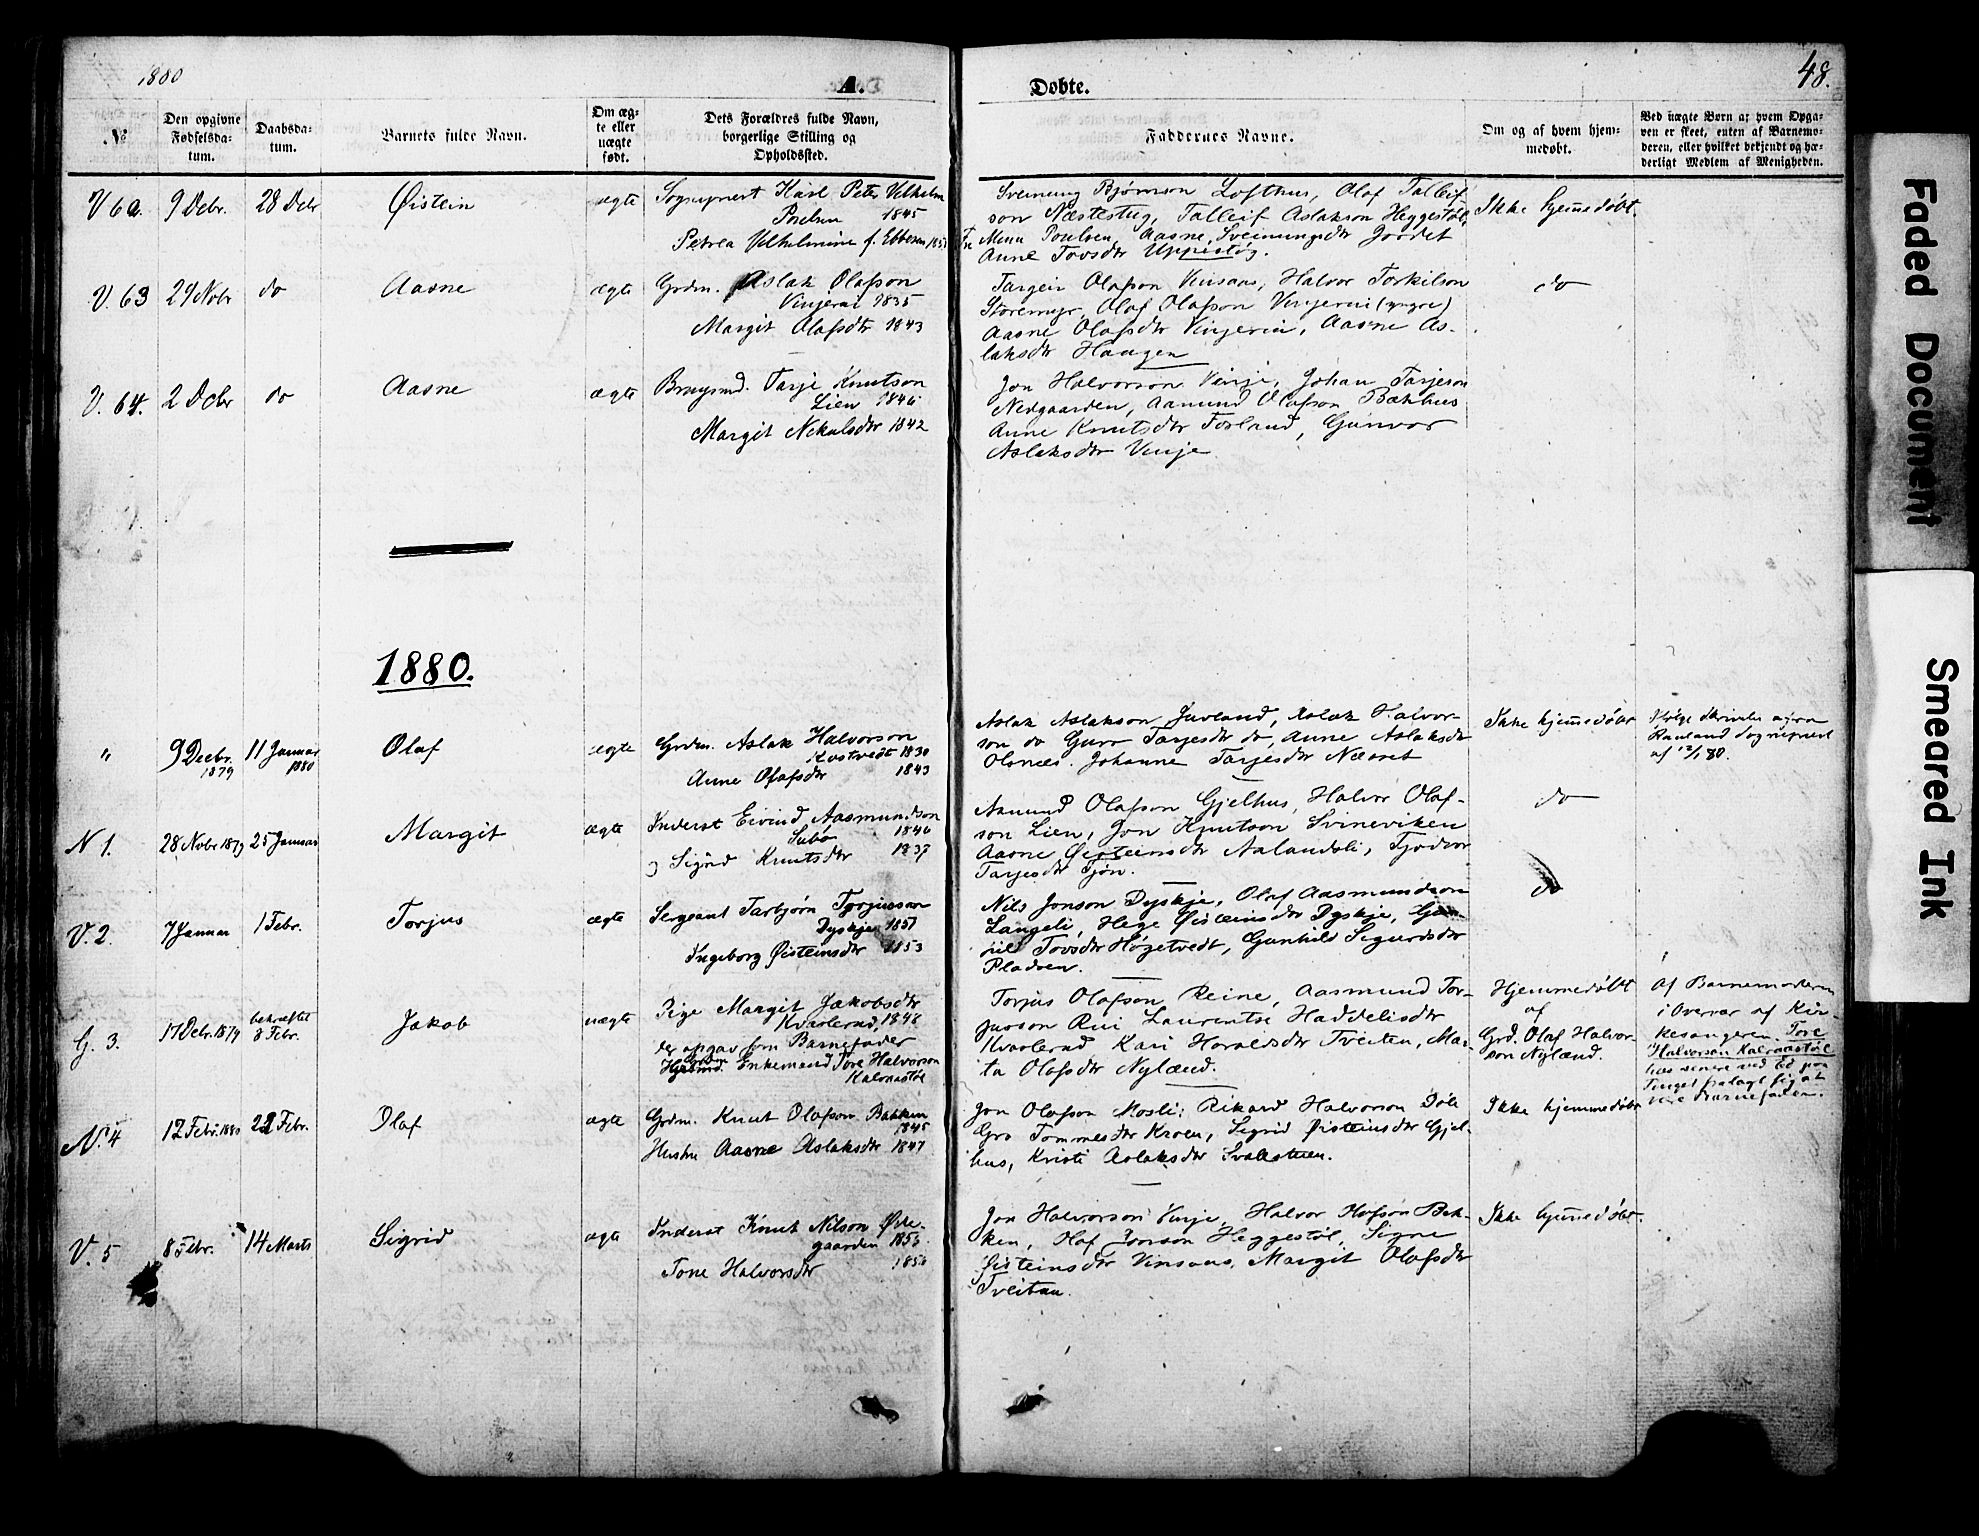 1880
A.
Døbte.
48.
No
Den opgivne Fødselsda-tum.
Daabsda-tum.
Barnets fulde Navn.
Om æg-te eller uægte født.
Dets Forældres fulde Navn, borgerlige Stilling og Opholdssted.
Faddernes Navne.
Om og af hvem hjem-medøbt.
Ved uægte Børn af hvem Opga-ven er skeet, enten af Barnemo-deren, eller hvilket bekjendt og hæ-derligt Medlem af Menigheden.
V 62. 9 Debr. 28 Debr Øistein ægte
Sogneprest Karl Peter Vilhelm
Poulsen 1845
Petrea Vilhelmine f. Ebbesen
Sveinung Bjørnson Lofthus, Olaf Talleif-
son Næstestug, Talleif Aslakson Heggestøl,
Fr. Mina Poulsen, Aasne Sveinungsdtr Jordet
Anne Tovsdtr Uppistog.
Ikke hjemmedøbt.
V. 63 29 Nobr do Aasne ægte
Grdm. Aslak Olafson
Vinjerui 1835
Margit Olafsdtr 1843
Targeir Olafson Vinsaas, Halvor Torkilson
Storemyr, Olaf Olafson Vinjerui (yngre)
Aasne Olafsdtr Vinjerui, Aasne As-
laksdtr Haugen
do
V. 64. 2 Debr do Aasne ægte
Brugsmd. Tarje Knutson
Lien 1846
Margit Nikulsdtr 1842
Jon Halvorson Vinje, Johan Tarjeson
Nedgaarden, Aamund Olafson Bækhus
Anne Knutsdtr Torland, Gunvor
Aslaksdtr Vinje
1880.
" 9 Decbr. 1879 11 Januar 1880 Olaf ægte
Grdm. Aslak Halvorson
Kostvedt 1830
Anne Olafsdtr 1843
Aslak Aslakson Juvland, Aslak Halvor-
son do Guro Tarjesdtr do, Anne Aslaksdtr
Olsnes. Johanne Tarjesdtr Næsset
Ikke hjemmedøbt
Ifølge Skrivelse fra
Rauland Sogneprest
af 12/1 80.
N 1. 28 Nobr 1879 25 Januar Margit ægte
Inderst Eivind Aasmundson
Subø 1846
Sigrid Knutsdtr 1837
Aamund Olafson Gjelhus, Halvor Olaf-
son Lien, Jon Knutson Svineviken
Aasne Øisteinsdtr Aalandsli,
Tarjesdtr Tjøn.
do
V. 2. 7 Januar 1 Febr. Torjus ægte
Sergeant Tarbjørn Torjusson
Dyskje 1851
Ingeborg Øisteinsdtr 1853
Nils Jonson Dyskje, Olaf Aasmundson
Langeli, Hege Øisteinsdtr Dyskje, Gun-
hild Tovsdtr Høgetvedt, Gunhild Sigurdsdtr
Pladsen.
do
G. 3. 17 Debr. 1879 bekræftet 8 Febr. Jakob uægte
Pige Margit Jakobsdtr
Kvaalerud, 1848
der opgav som Barnefader
Enkemand Tore Halvorson
Kalvaastøl
Torjus Olafson Reine, Aasmund Tor-
jusson Rui Laurentse Haddelsdtr
Kvaalerud Kari Haraldsdtr Tveiten, Mar-
ta Olafsdtr Nylænd.
Hjemmedøbt
af
Grd. Olaf Halvor-
son Nylænd.
Af Barnemoderen
i Overvær af Kir-
kesangeren. Tore
Halvorson Kalvaastøl
har senere ved Ed paa
Tinget fralagt sig at
være Barnefader.
N. 4 12 Febr. 1880 22 Febr. Olaf ægte
Grdm. Knut Olafson Bakken
1845
Hustru Aasne Aslaksdtr 1847
Jon Olafson Mosli; Rikard Halvorson Bøle
Gro Tommesdtr Kroen, Sigrid Øisteinsdtr Gjel-
hus, Kristi Aslaksdtr Svalestuen.
Ikke hjemmedøbt
V. 5 8 Febr. 14 Marts Sigrid ægte
Inderst Knut Nilson Øste-
gaarden 1853
Tone Halvorsdtr 1856
Jon Halvorson Vinje, Halvor Olafson Bek-
ken, Olaf Jonson Heggestøl, Signe
Øisteinsdtr Vinsaas, Margit Olafsdtr
Tveitan.
Ikke hjemmedøbt.
Faded Document
Smeared Ink